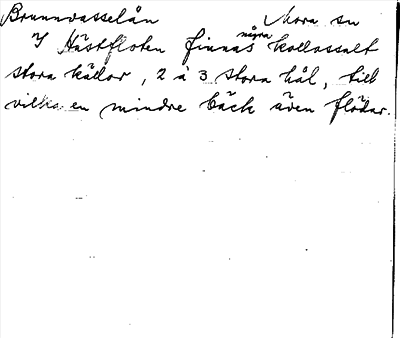 Brunnvasselån Mora sn
I Hästfloten finnas några kollossalt
stora källor, 2 à 3 stora hål, till
vilka en mindre bäck även flödar.